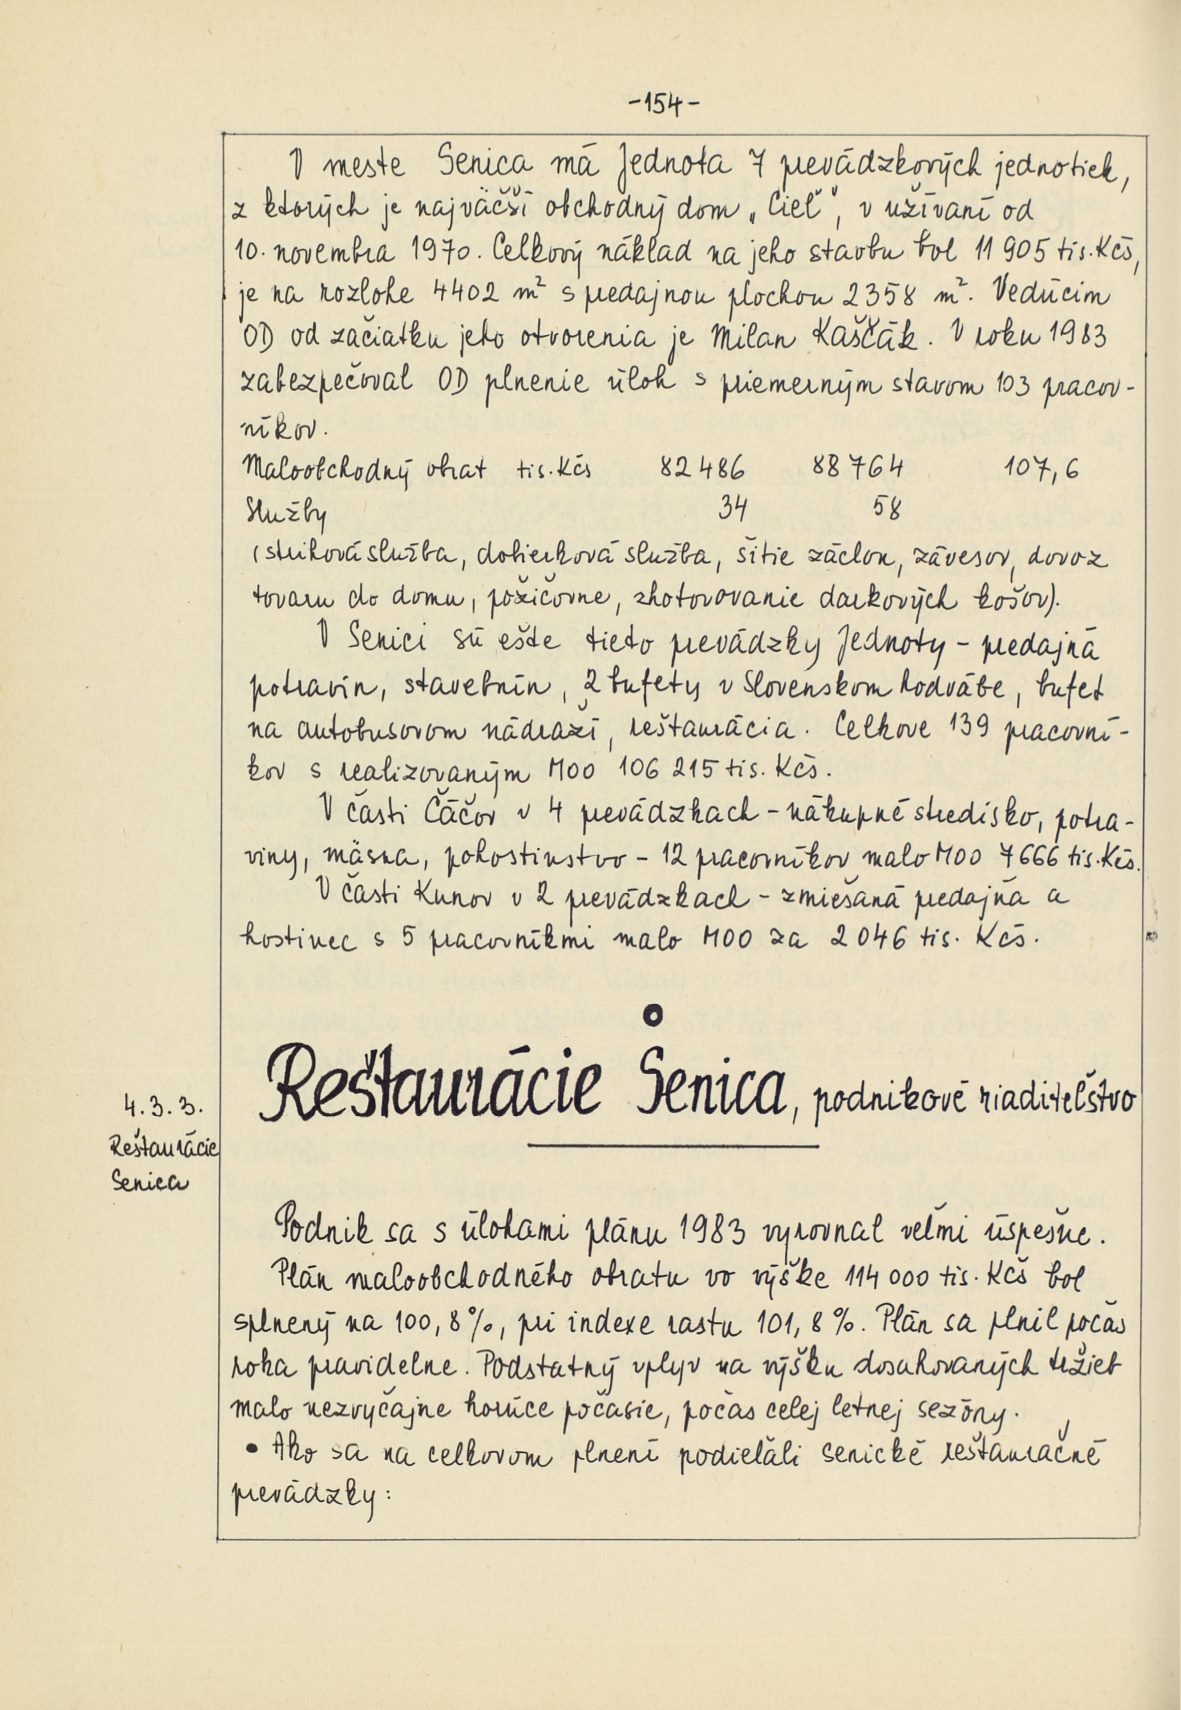 -154-
V meste Senica má Jednota 7 prevádzkových jednotiek,
z ktorých je najväčší obchodný dom „Cieľ", v užívaní od
10. novembra 1970. Celkový náklad na jeho stavbu bol 11 905 tis. Kčs,
je na rozlohe 4402 m² s predajnou plochou 2358 m². Vedúcim
OD od začiatku jeho otvorenia je Milan Kaščák. V roku 1983
zabezpečoval OD plnenie úloh s priemerným stavom 103 pracov-
níkov.
Maloobchodný obrat tis. Kčs 82 486 88 764 107,6
Služby 34 58
(strihová služba, dobierková služba, šitie záclon, závesov, dovoz
tovaru do domu, požičovne, zhotovovanie darkových košov).
V Senici sú ešte tieto prevádzky Jednoty - predajná
potravín, stavebnín, 2 bufety v Slovenskom hodvábe, bufet
na autobusovom nádraží, reštaurácia. Celkove 139 pracovní-
kov s realizovaným MOO 106 215 tis. Kčs.
V časti Čáčov v 4 prevádzkach - nákupné stredisko, potra-
viny, mäsna, pohostinstvo - 12 pracovníkov malo MOO 7 666 tis. Kčs.
V časti Kunov v 2 prevádzkach - zmiešaná predajňa a
hostinec s 5 pracovníkmi malo MOO za 2 046 tis. Kčs.
Reštaurácie Senica, podnikové riaditeľstvo
4.3.3.
Reštaurácie
Senica
Podnik sa s úlohami plánu 1983 vyrovnal veľmi úspešne.
Plán maloobchodného obratu vo výške 114 000 tis. Kčs bol
splnený na 100,8 %, pri indexe rastu 101,8 %. Plán sa plnil počas
roka pravidelne. Podstatný vplyv na výšku dosahovaných tržieb
malo nezvyčajne horúce počasie, počas celej letnej sezóny.
• Ako sa na celkovom plnení podieľali senické reštauračné
prevádzky: